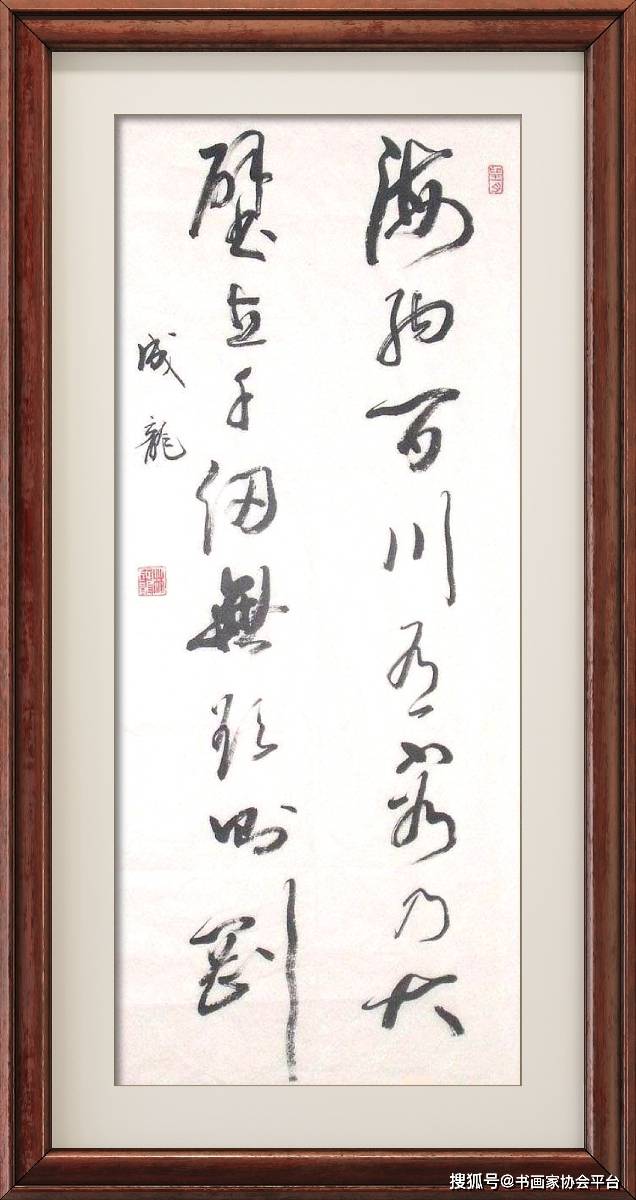 海納百川有容乃大
壁立千仞無欲則剛
成龍
搜狐号@书画家协会平台